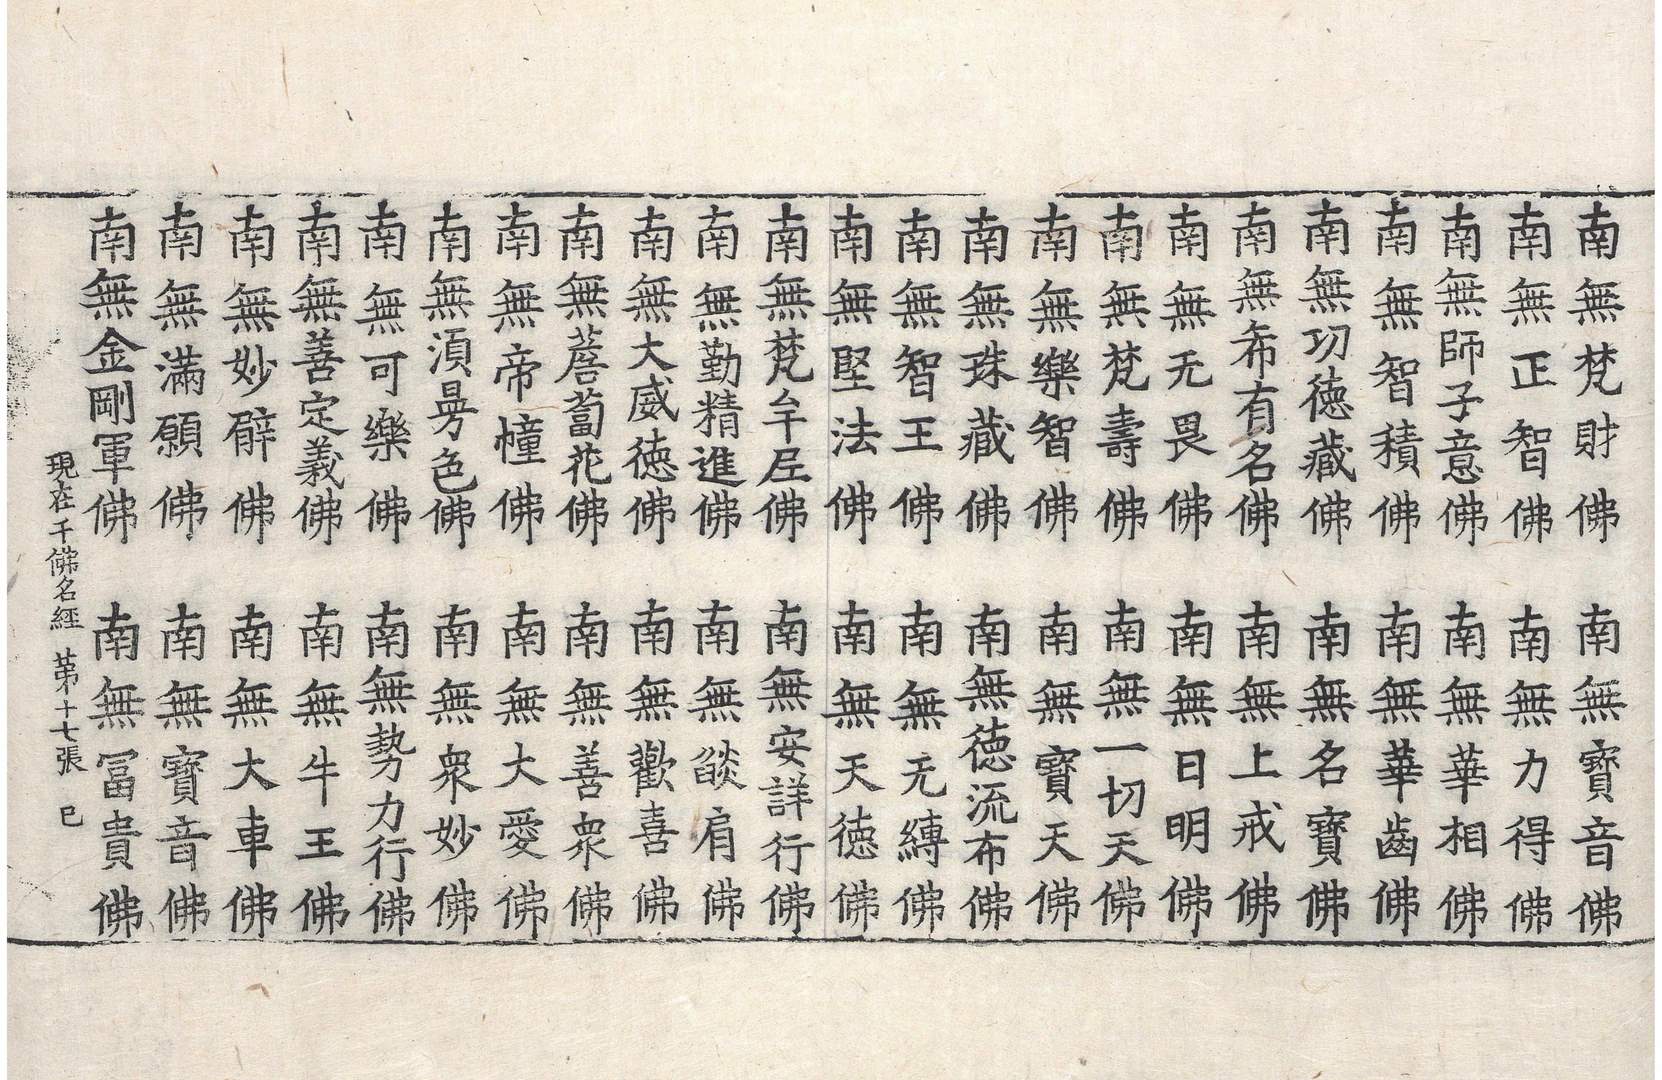 南無梵財佛 南無寶音佛
南無正智佛 南無力得佛
南無師子意佛 南無華相佛
南無智積佛 南無華齒佛
南無功徳藏佛 南無名寶佛
南無希有名佛 南無上戒佛
南無无畏佛 南無日明佛
南無梵壽佛 南無一切天佛
南無樂智佛 南無寶天佛
南無珠藏佛 南無徳流布佛
南無智王佛 南無无縛佛
南無堅法佛 南無天徳佛
南無梵牟尼佛 南無安詳行佛
南無勤精進佛 南無燄肩佛
南無大威徳佛 南無歡喜佛
南無薝蔔花佛 南無善衆佛
南無帝幢佛 南無大愛佛
南無須曼色佛 南無衆妙佛
南無可樂佛 南無勢力行佛
南無善定義佛 南無牛王佛
南無妙臂佛 南無大車佛
南無滿願佛 南無寶音佛
南無金剛軍佛 南無冨貴佛
現在千佛名經 第十七張 巳